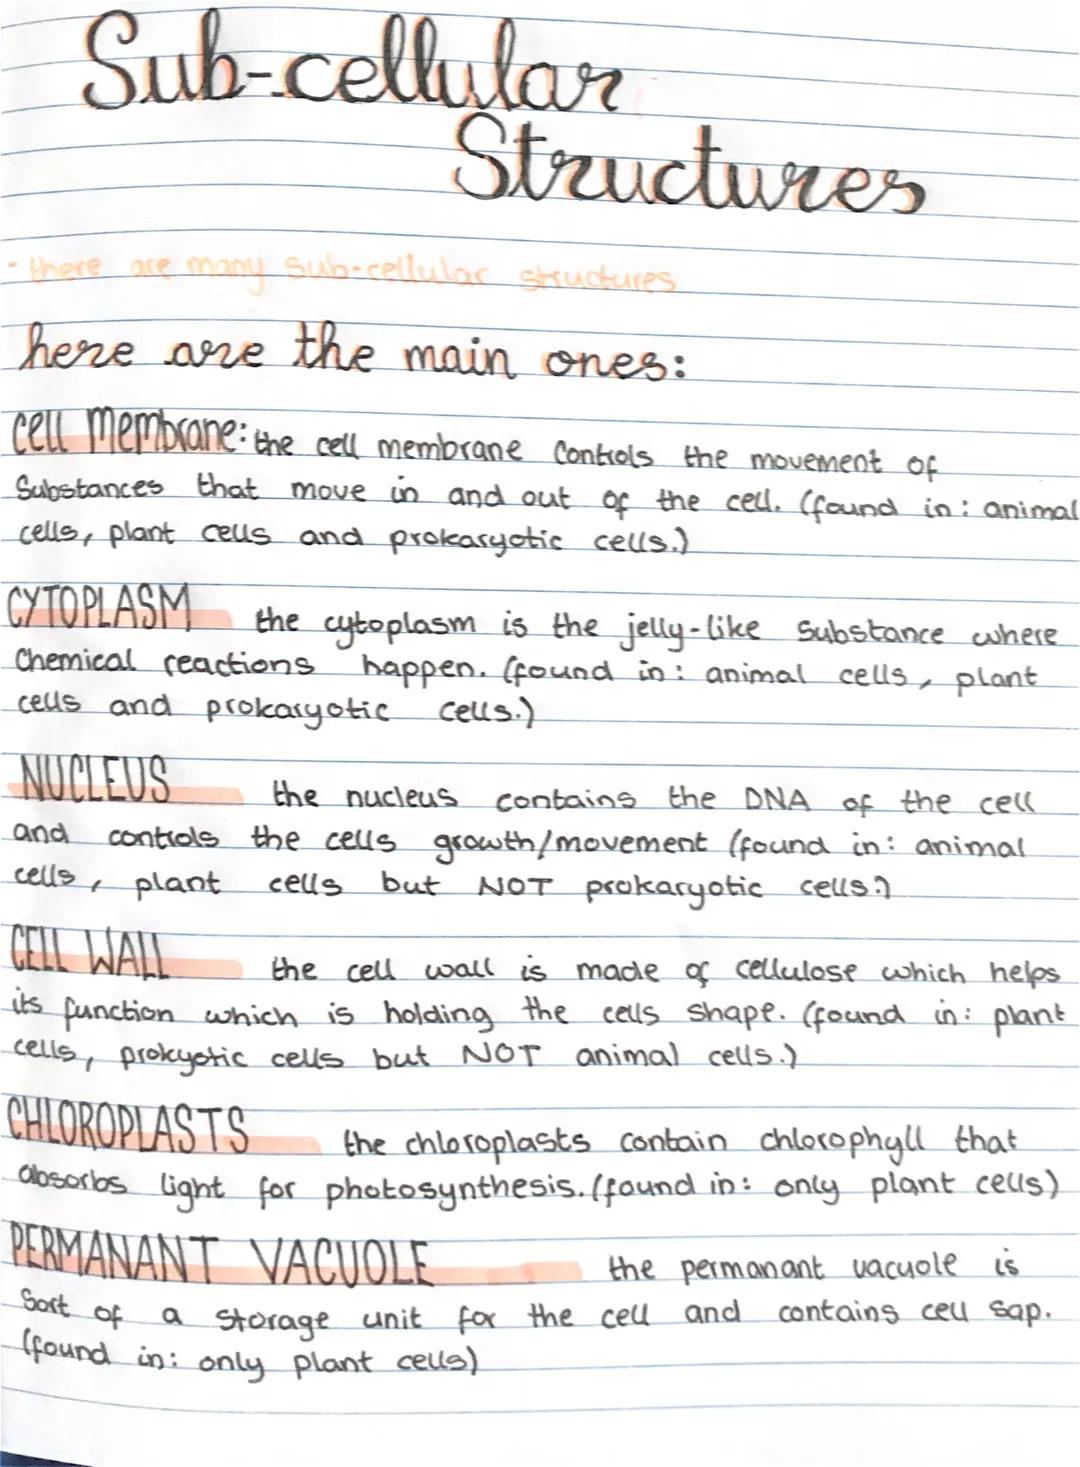 Sub-cellular
Structures
- there are many sub-cellular structures
here are the main ones:
cell membrane: the cell membrane controls the movement of
Substances that move in and out of the cell. (found in: animal
cells, plant cells and prokaryotic cells.)
CYTOPLASM the cytoplasm is the jelly-like substance where
Chemical reactions happen. (found in: animal cells, plant
cells and prokaryotic cells.)
NUCLEUS the nucleus contains the DNA of the cell
and controls the cells growth/movement (found in: animal
cells, plant cells but NOT prokaryotic cells.)
CELL WALL the cell wall is made of cellulose which helps
its function which is holding the cells shape. (found in: plant
cells, prokyotic cells but NOT animal cells.)
CHLOROPLASTS the chloroplasts contain chlorophyll that
absorbs light for photosynthesis. (found in: only plant cells)
PERMANANT VACUOLE the permanant vacuole is
Sort of a storage unit for the cell and contains cell sap.
(found in: only plant cells)